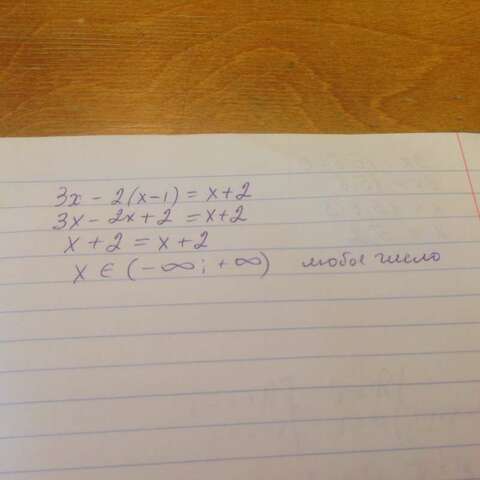 3x - 2(x-1) = x+2
3x - 2x + 2 = x+2
x + 2 = x + 2
x ∈ (-∞; +∞) любое число